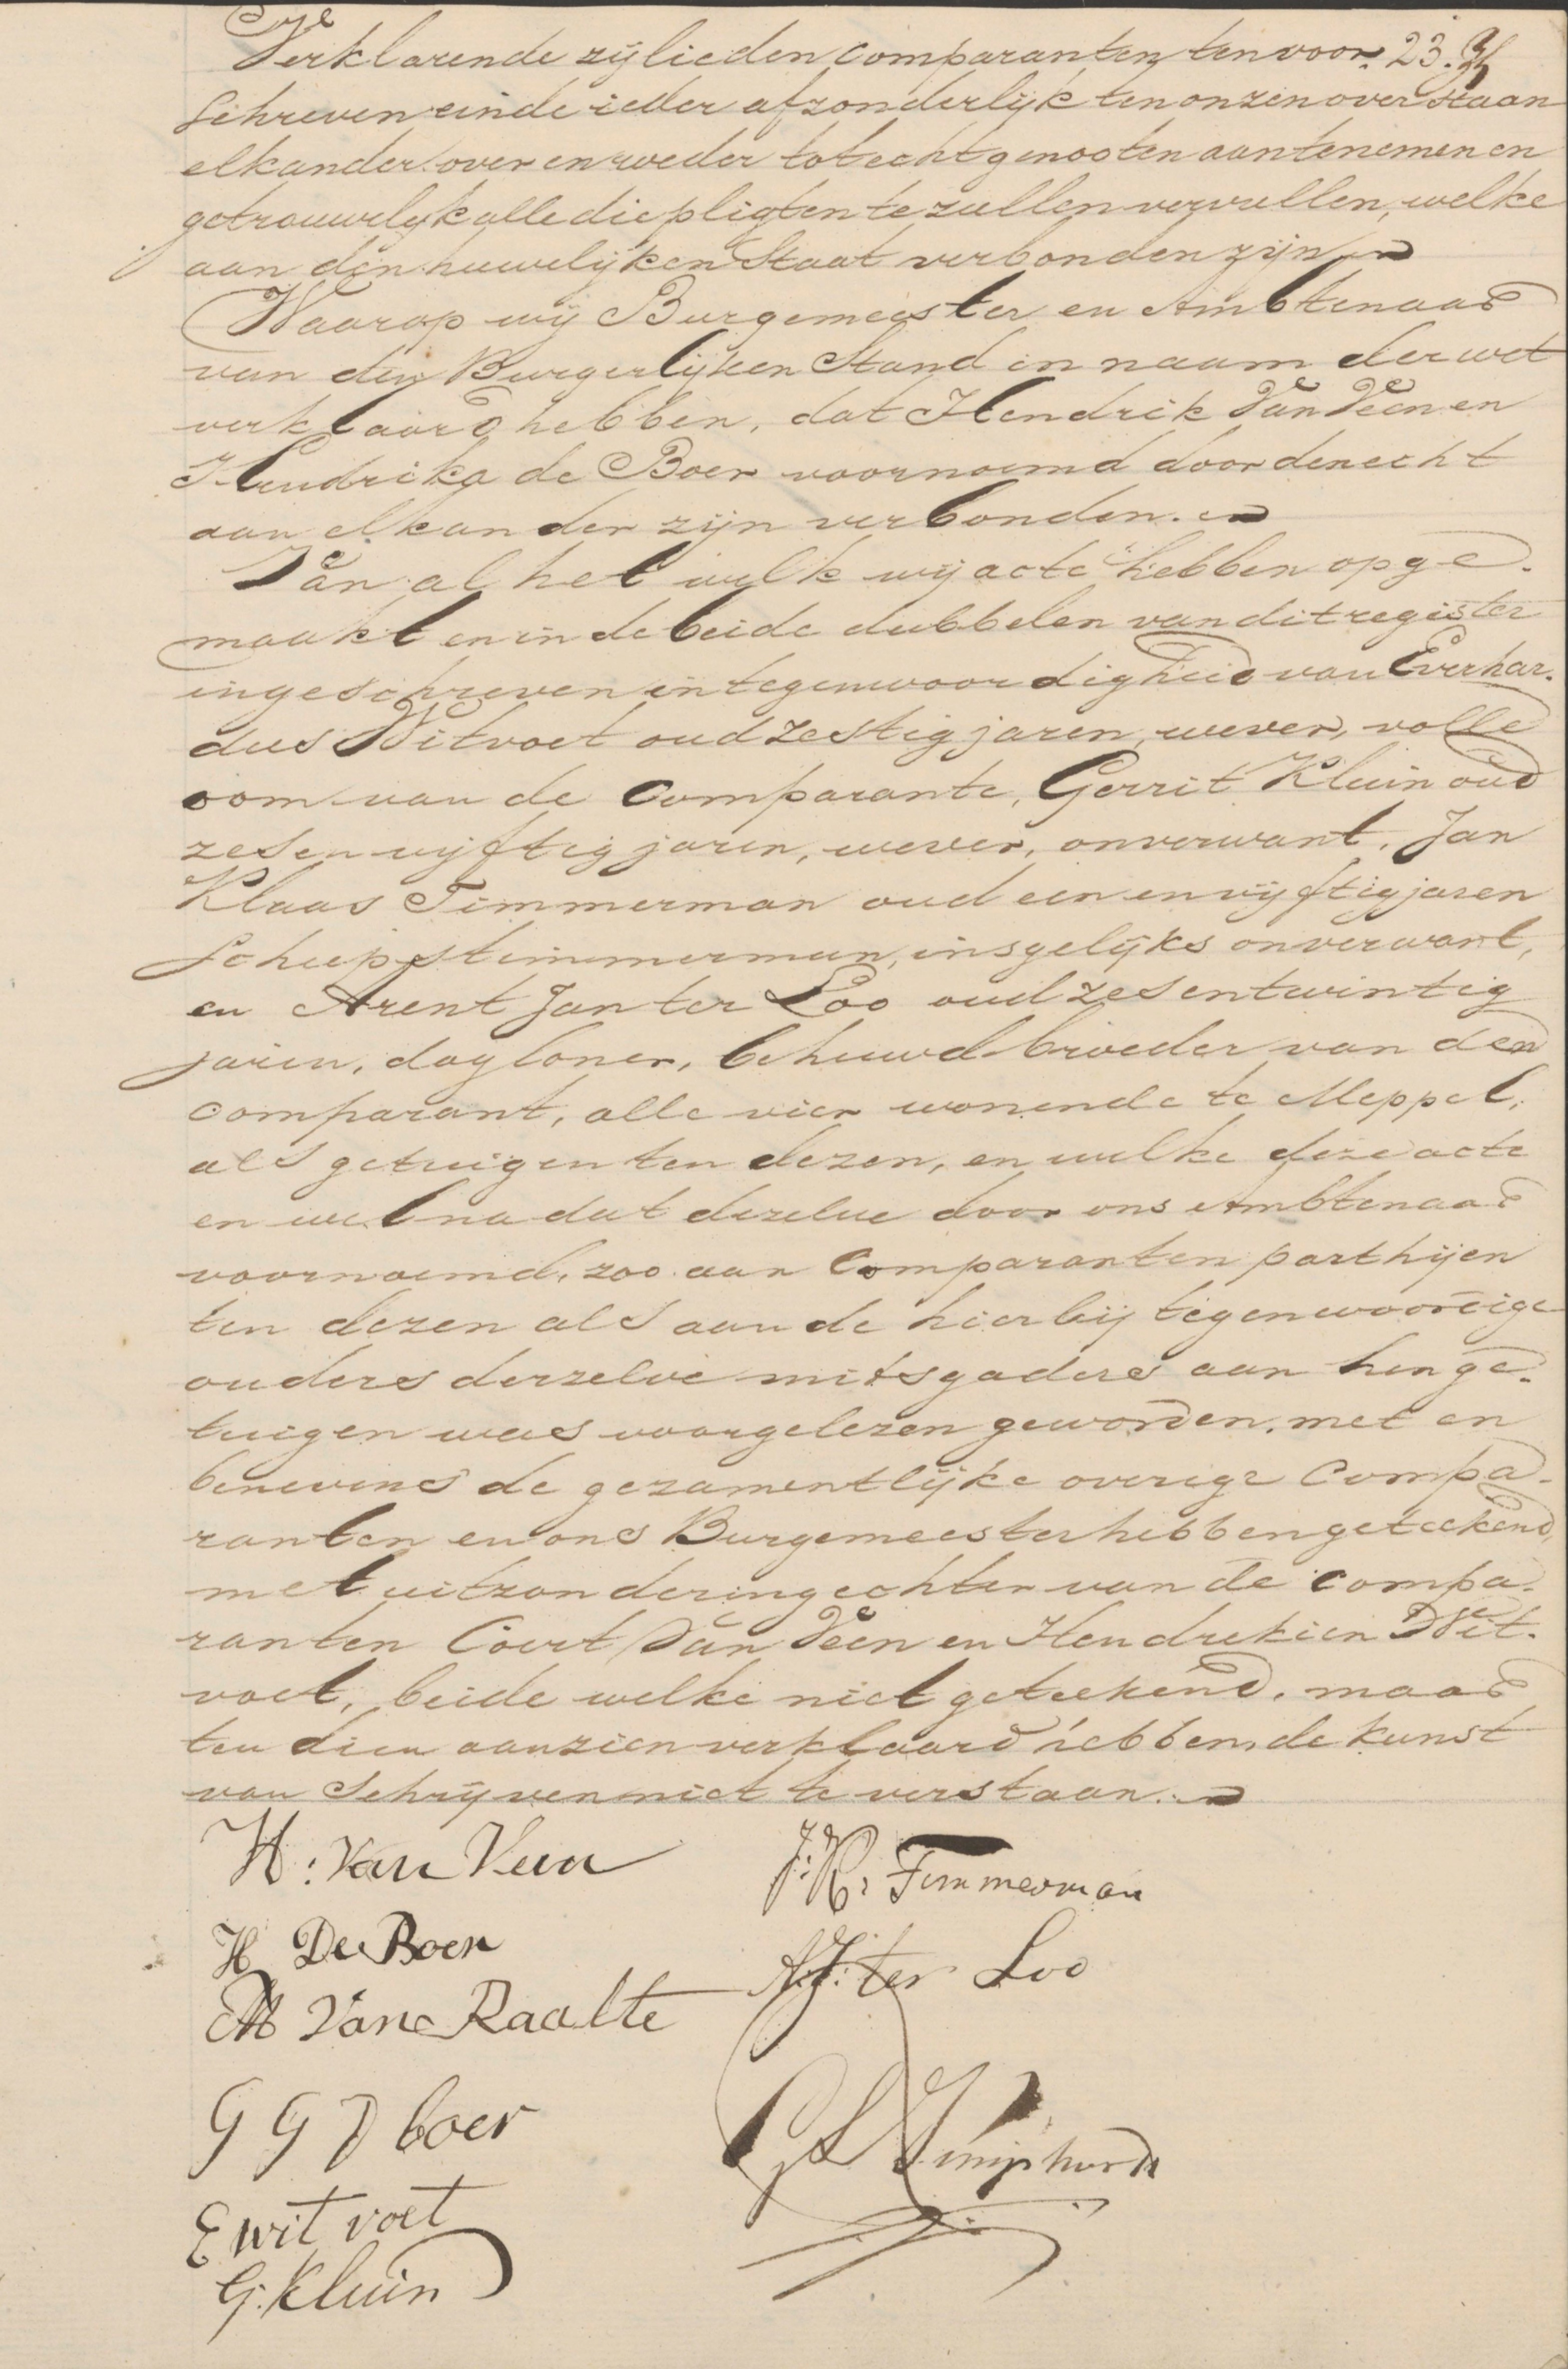 Verklarende zij lieden comparanten ten voor. 23.
schreven einde ieder afzonderlijk ten onzen overstaan
elkander over en weder tot echtgenooten aantenemen en
getrouwelijk alle die pligten te zullen vervullen, welke
aan den huwelijken Staat verbonden zijn
Waarop wij Burgemeester en Ambtenaar
van den Burgerlijken Stand in naam der wet
verklaard hebben, dat Hendrik Van Veen en
Hendrika de Boer voornoemd door den echt
aan elkander zijn verbonden.
Van al het welk wij acte hebben opge-
maakt en in de beide dubbelen van dit register
ingeschreven in tegenwoordigheid van Everhar-
dus Witvoet oud zestig jaren, wever, volle
oom van de Comparante, Gerrit Kluin oud
zesenvijftig jaren, wever, onverwant, Jan
Klaas Timmerman oud een en vijftig jaren
Scheepstimmerman, insgelijks onverwant,
en Arent Jan ter Loo oud zesentwintig
jaren, dagloner, behuwd broeder van den
comparant, alle vier wonende te Meppel,
als getuigen ten dezen, en welke deze acte
en wel na dat dezelve door ons Ambtenaar
voornoemd, zoo aan Comparanten parthijen
ten dezen als aan de hierbij tegenwoordige
ouders derzelve mitsgaders aan hen ge-
tuigen was voorgelezen geworden, met en
benevens de gezamentlijke overige Compa-
ranten en ons Burgemeester hebben geteekend,
met uitzondering echter van de compa-
ranten Coert Van Veen en Hendrekien Wit-
voet, beide welke niet geteekend, maar
ten dien aanzien verklaard hebben, de kunst
van Schrijven niet te verstaan.
H: Van Veen
J: K: Timmerman
H De Boer
A.J: ter Loo
M Van Raalte
G G D boer
E wit voet
G. Kluin